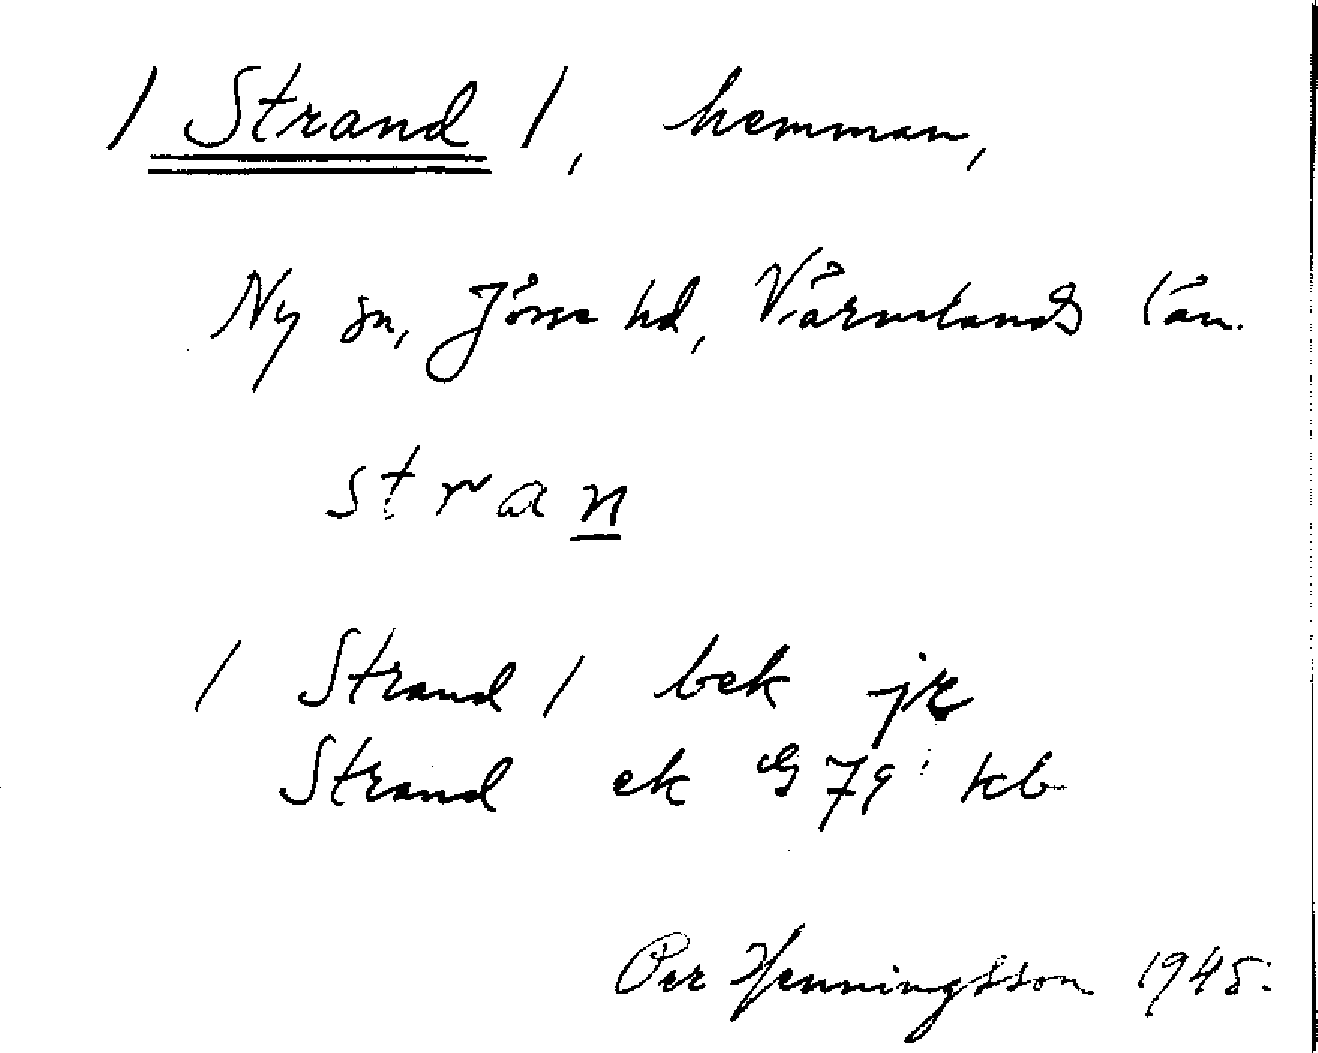 / Strand /, hemman,
Ny sn, Jösse hd, Värmlands län.
stran
/ Strand / bek jr
Strand ek 79 kb
Per Henningsson 1945.